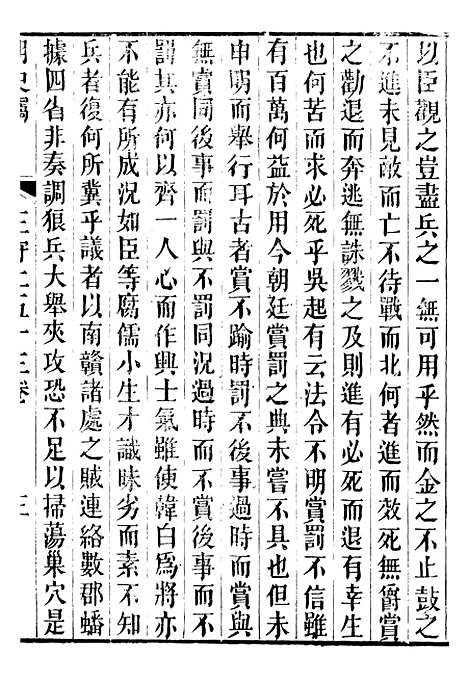 以臣觀之豈盡兵之一無可用乎然而金之不止鼓之
不進未見敵而亡不待戰而北何者進而效死無爵賞
之勸退而奔逃無誅戮之及則進有必死而退有幸生
也何苦而求必死乎吳起有云法令不明賞罰不信雖
有百萬何益於用今朝廷賞罰之典未嘗不具也但未
申明而舉行耳古者賞不踰時罰不後事過時而賞與
無賞同後事而罰與不罰同況過時而不賞後事而不
罰其亦何以齊一人心而作興士氣雖使韓白爲將亦
不能有所成況如臣等腐儒小生才識昧劣而素不知
兵者復何所冀乎議者以南贛諸處之賊連絡數郡蟠
據四省非奏調狼兵大舉夾攻恐不足以掃蕩巢穴是
明史竊 王守仁五十三卷 三